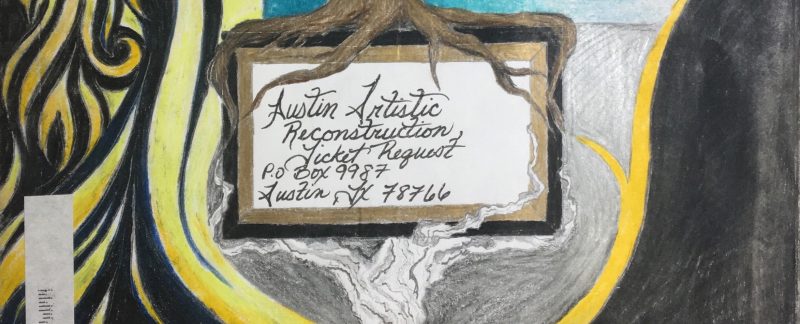 Austin Artistic
Reconstruction
Ticket Request
P.O Box 9987
Austin, TX 78766